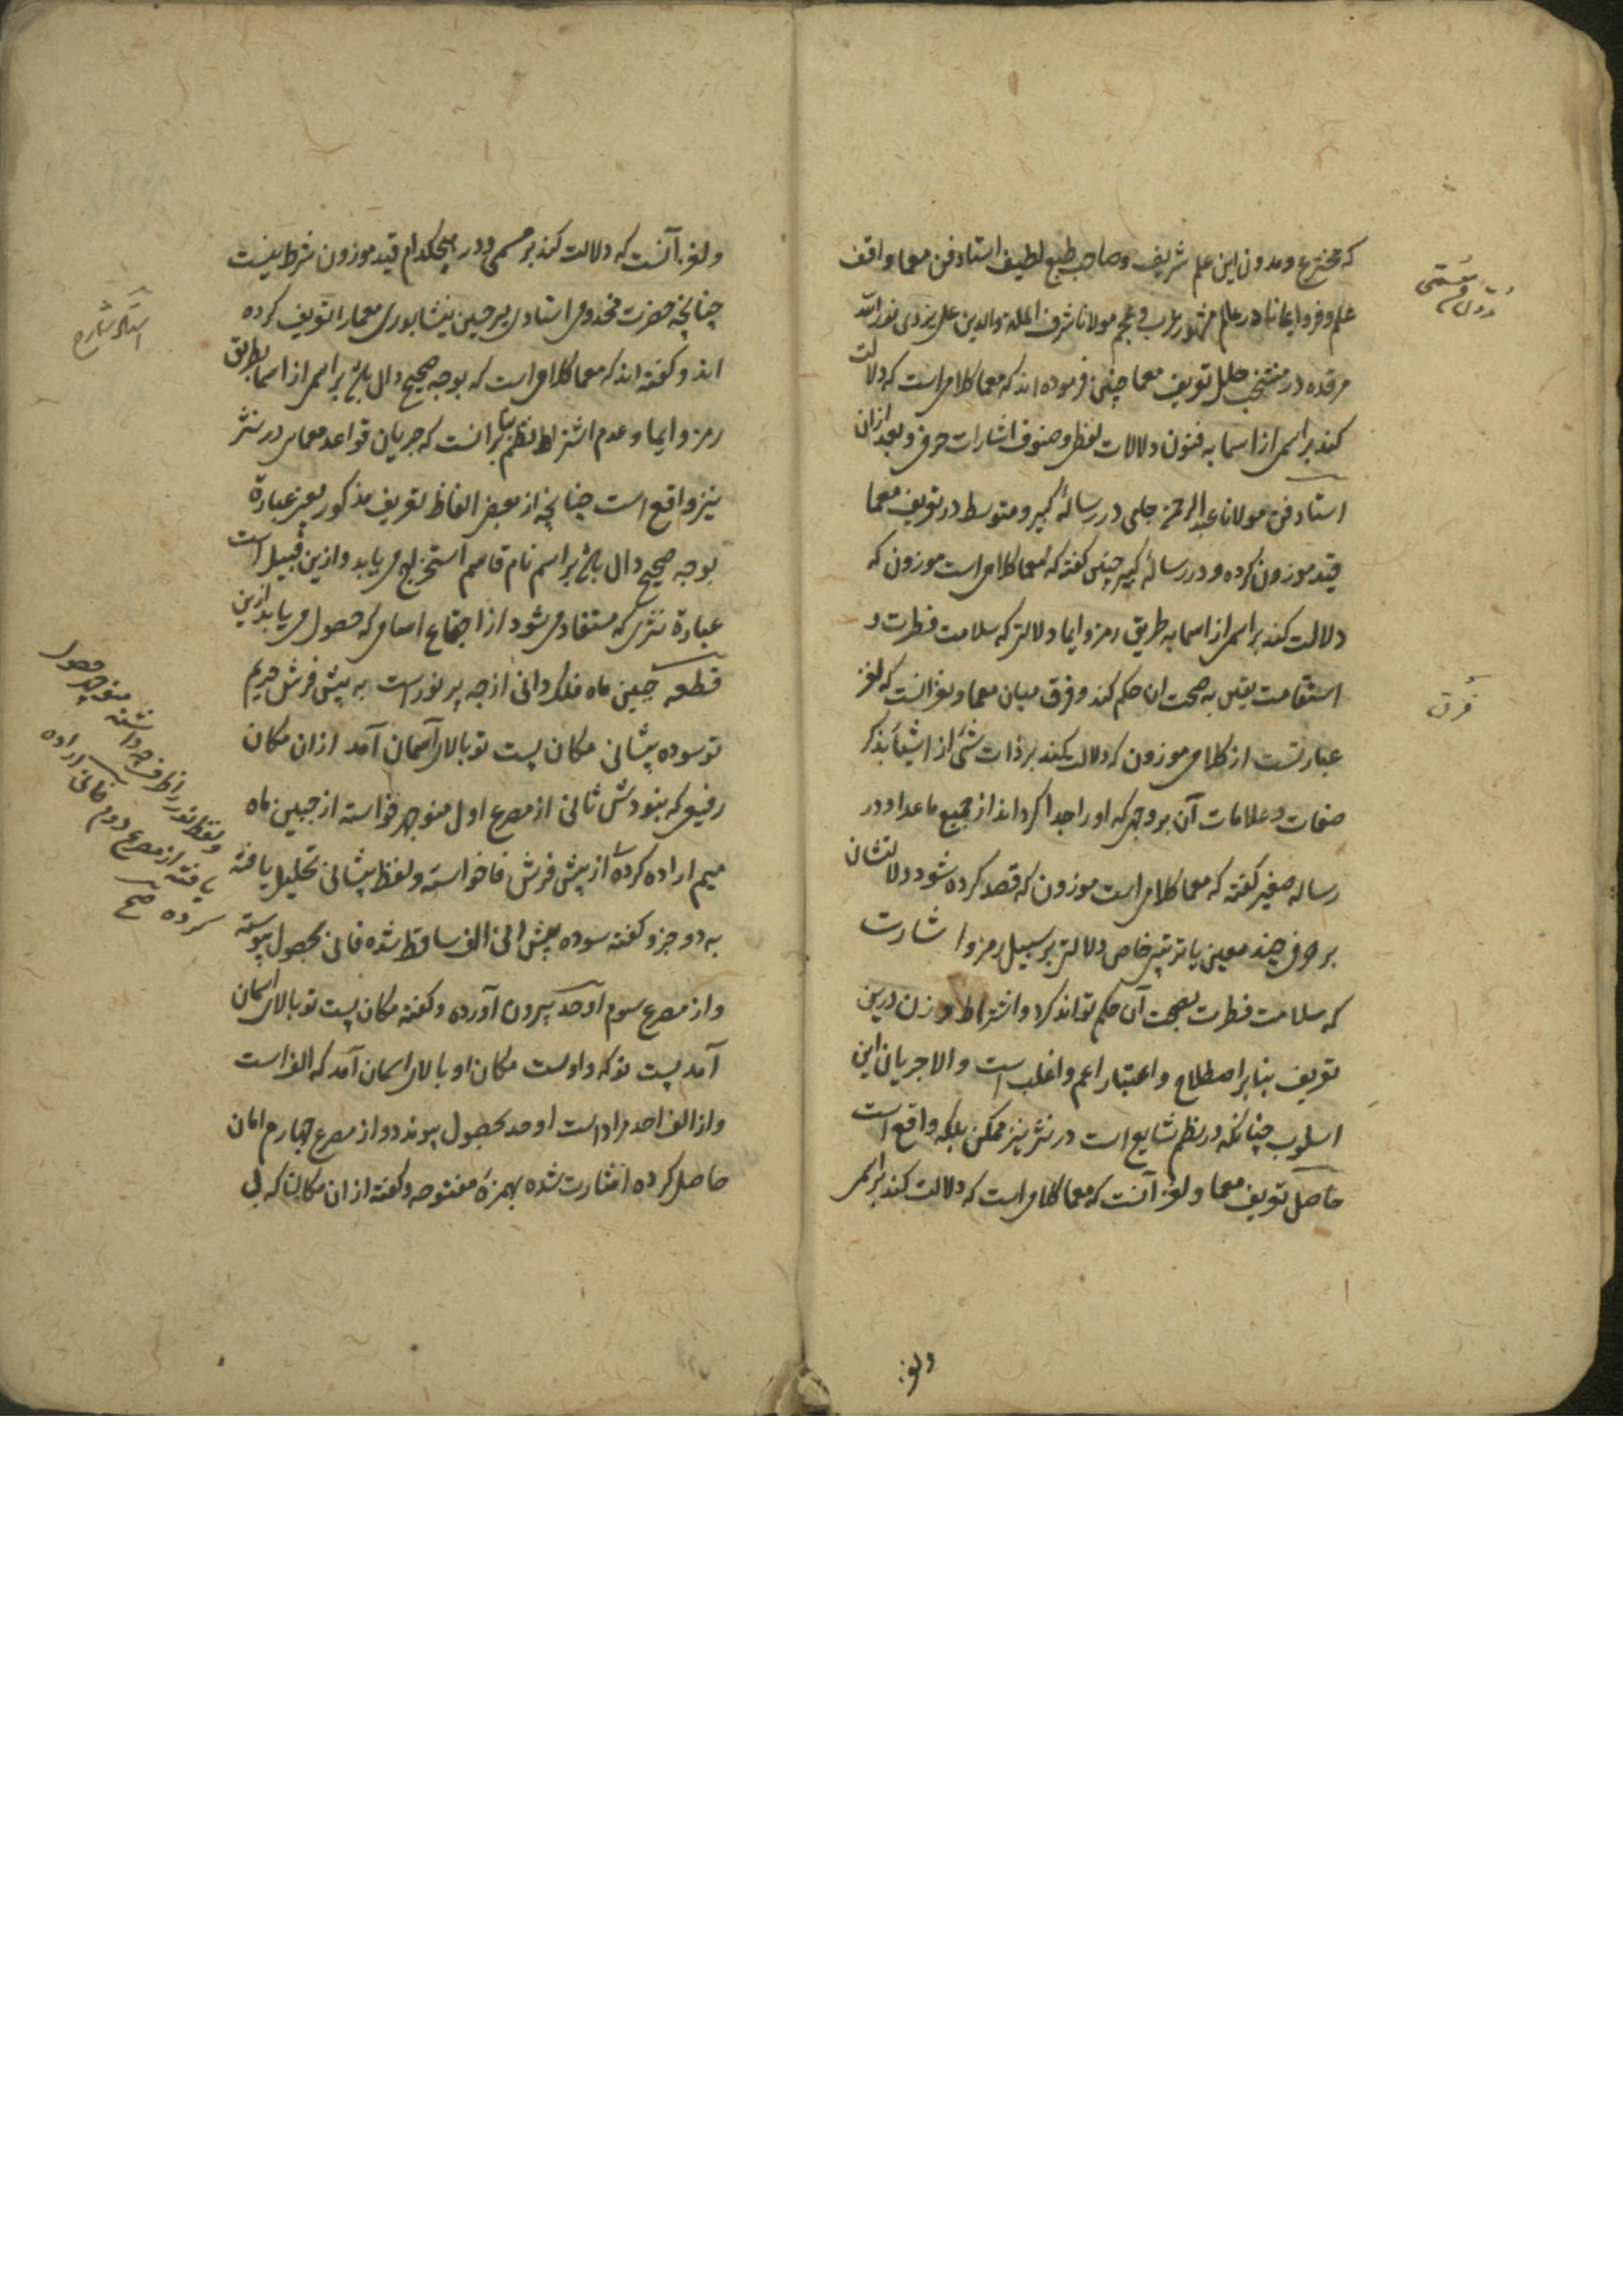 که مخترع و مدون این علم شریف و صاحب طبع لطیف استاد فن معما واقف
علم و فر و ایما نادر عالم مشهور عرب و عجم مولانا شرف الملة والدین علی یزدی نور الله
مرقده در منتخب حلل تعریف معما چنین فرموده اند که معما کلامی است که دلالت
کند بر اسمی از اسما به فنون دلالات لفظی و صنوف اشارات حرفی و بعد ازان
استاد فن مولانا عبدالرحمن جامی در رسالهٔ کبیر و متوسط در تعریف معما
قید موزون کرده و در رسالهٔ کبیر چنین گفته که معما کلامی است موزون که
دلالت کند بر اسمی از اسما به طریق رمز و ایما دلالتی که سلامت فطرت و
استقامت یقین به صحت ان حکم کند و فرق میان معما و لغز انست که لغز
عبارتست از کلامی موزون که دلالت کند بر ذات شئ از اشیا بذکر
صفات و علامات آن بر وجهی که او را جدا گرداند از جمیع ماعدا و در
رساله صغیر گفته که معما کلامی است موزون که قصد کرده شود دلالتشان
بر حرفی چند معین با ترتیبی خاص دلالتی بر سبیل رمز و اشارت
که سلامت فطرت بصحت آن حکم تواند کرد و اشتراط وزن درین
تعریف بنابر اصطلاح و اعتبار اعم و اغلب است و الا جریان این
اسلوب چنانکه در نظم شایع است در نثر نیز ممکن بلکه واقع است
حاصل تعریف معما و لغز آنست که معما کلامی است که دلالت کند بر اسمی
فرق
ولغز
ولغز آنست که دلالت کند بر مسمی و در هیچکدام قید موزون شرط نیست
چنانچه حضرت مخدومی استادی میر حسین نیشابوری معما را تعریف کرده
اند و گفته اند که معما کلامی است که بوجه صحیح دال باشد بر اسمی از اسما بطریق
رمز و ایما و عدم اشتراط نظم بنابر انست که جریان قواعد معمایی در نثر
نیز واقع است چنانچه از بعض الفاظ تعریف مذکور یعنی عبارة
بوجه صحیح دال باشد بر اسم نام قاسم استخراج می یابد و ازین قبیل است
عبارة نثری که مستفاد می شود از اجتماع اسامی که حصول می یابد ازین
قطعه جبین ماه فلک دانی از چه پر نور است به پیش فرش حریم
تو سوده پیشانی مکان پست تو بالای آسمان آمد ازان مکان
رفیعی که نبودش ثانی از مصرع اول منوچهر خواسته از جبین ماه
میم اراده کرده از پیش فرش فا خواسته و لفظ پیشانی تحلیل یافته
به دو جزو گفته سوده پیش انی الف ساقط شده فانی بحصول پیوسته
و از مصرع سوم اوحد بیرون آورده و گفته مکان پست تو بالای اسمان
آمد پست تو که واوست مکان او بالای اسمان آمد که الف است
و از الف احد مراد است اوحد بحصول پیوندد و از مصرع چهارم امان
حاصل کرده اشارت شده بهمزهٔ مفتوحه و گفته ازان مکان که بی
استاد شارح
ولفظ نور را ظرف چه داشته منوچهر حصول
یافته از مصرع دوم فانی اراده
کرده صح